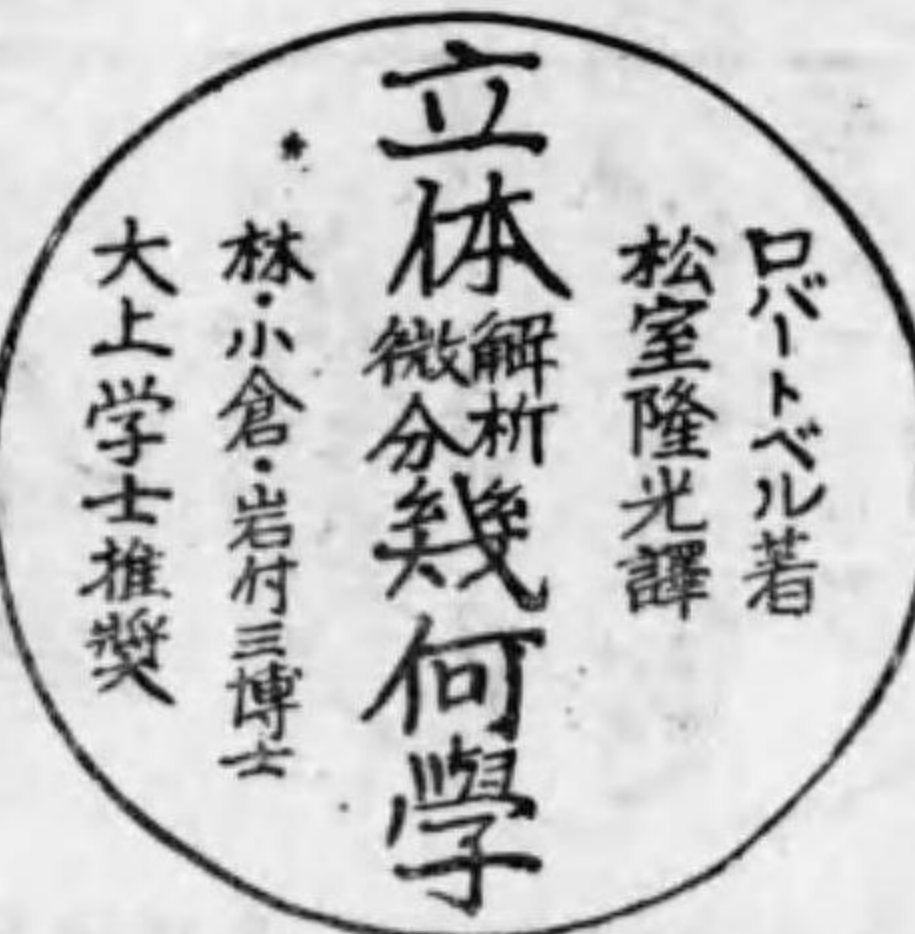 ロバートベル著
松室隆光譯
立体解析微分幾何學
林・小倉・岩付三博士
大上学士推奨